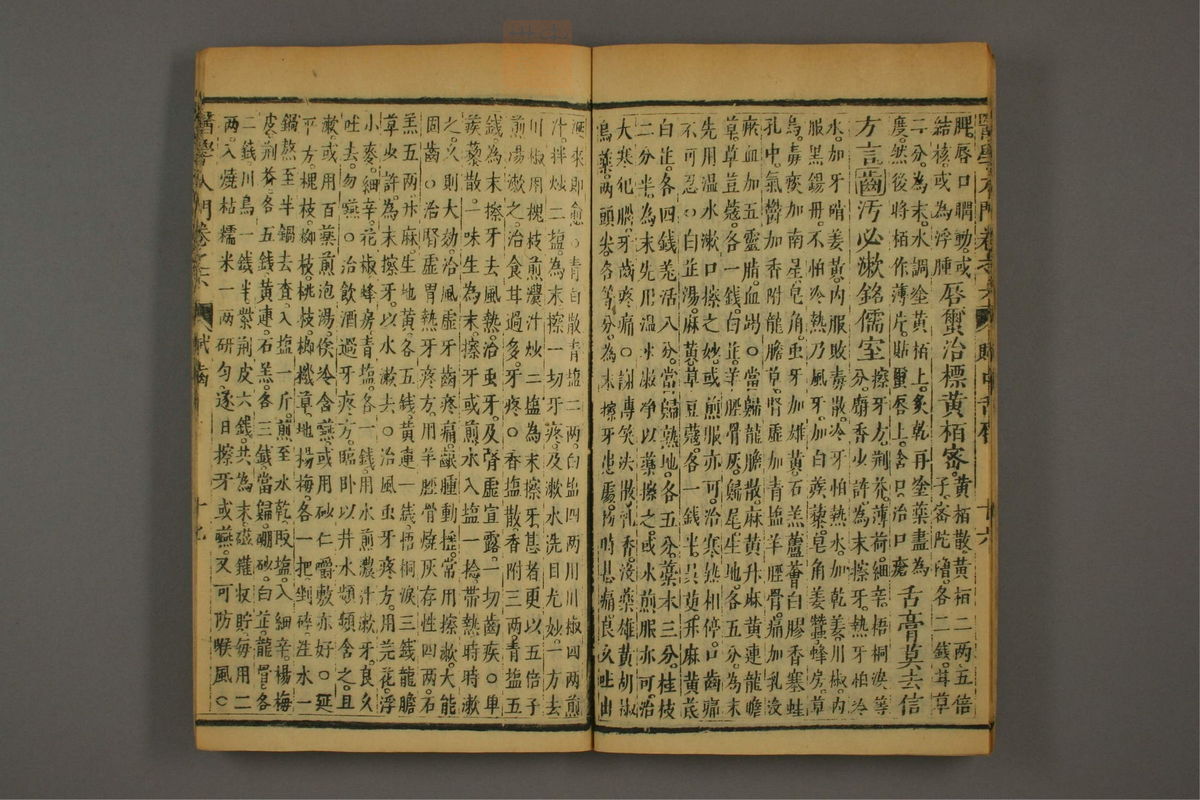 脾唇口瞤動或唇蜜治標黃栢審黃栢散黃栢二兩五倍
結核或為浮腫子密陀僧各二錢甘草
二分為末水調塗黃栢上炙乾再塗藥盡為舌膏莫去信
度然後將栢作薄片貼蠒唇上含口治口瘡
方言齒汚必漱銘儒室擦牙方荆芥薄荷細辛梧桐淚等
分麝香少許為末擦牙熱牙怕冷
水加牙硝姜黃内服敗毒散冷牙怕熱水加乾姜川椒内
服黑錫丹不怕冷熱乃風牙加白蒺藜皂角姜蠶蜂房草
烏毒痰加南星皂角虫牙加雄黃石羔蘆薈白膠香塞蛀
孔中氣鬱加香附龍膽草腎虛加青塩羊脛骨痛加乳没
瘀血加五靈脂血竭○當歸龍膽散麻黃升麻黃連龍膽
草草荳蔻各一錢白芷羊脛骨灰歸尾生地各五分為末
先用温水漱口擦之妙或煎服亦可治寒熱相停口齒痛
不可忍○白芷湯麻黃草豆蔻各一錢半吳茰升麻黃芪
白芷各四錢羌活八分當歸熟地各五分藁本三分桂枝
二分半為末先用温水漱净以藥擦之或水煎服亦可治
大寒犯腦牙齒疼痛○謝傳笑法散乳香没藥雄黃胡椒
烏藥兩頭尖各等分為末擦牙患處初時甚痛良久吐出
涎來即愈○青白散青塩二兩白塩四兩川椒四兩煎
汁拌炒二塩為末擦一切牙疼及漱水洗目尤妙一方去
川椒用槐枝煎濃汁炒二塩為末擦牙甚者更以五倍子
煎湯漱之治食甘過多牙疼○香塩散香附三兩青塩五
錢為末擦牙去風熱治虫牙及腎虛宣露一切齒疾○単
蒺藜散一味生為末擦牙或煎水入塩一捻帶熱時時漱
之久則大効治風虛牙齒疼痛齦腫動揺常用擦漱大能
固齒○治腎虛胃熱牙疼方用羊脛骨燒灰存性四兩石
羔五兩升麻生地黃各五錢黃連一錢梧桐淚三錢龍膽
草少許為末擦牙以水漱去○治風虫牙疼方用芫花浮
小麥細辛花椒蜂房青塩各一錢用水煎濃汁漱牙良久
吐去勿嚥○治飲酒過牙疼方臨卧以井水頻頻含之且
漱或用百藥煎泡湯俟冷含嚥或用砂仁嚼敷亦好○延
平方槐枝柳枝桃枝柳㰂草地楊梅各一把剉碎洼水一
鍋熬至半鍋去査入塩一斤煎至水乾取塩入細辛楊梅
皮荆芥各五錢黃連石羔各三錢當歸硼砂白芷龍骨各
二錢川烏一錢半紫荆皮六錢共為末磁罐收貯每用二
兩入燒枯糯米一兩研勻逐日擦牙或嚥又可防喉風○
醫學入門卷之六
賦齒
十七